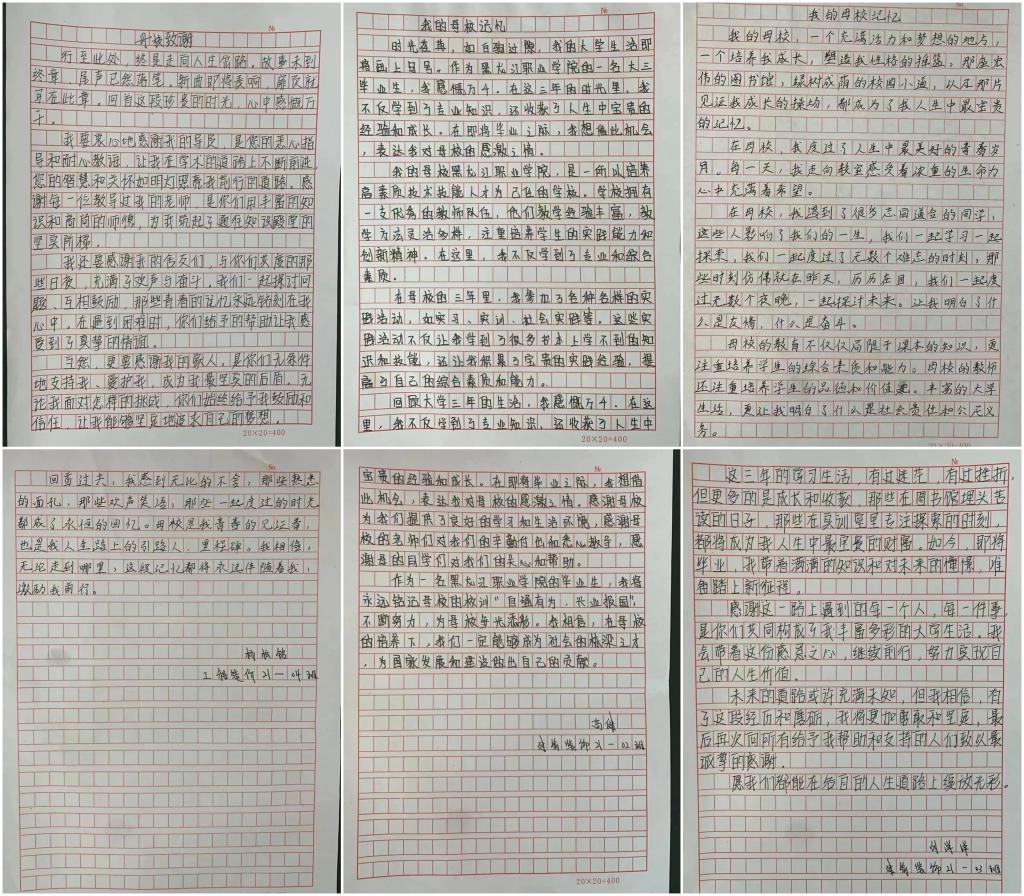 母校致谢
行至此处，终是走向人生岔路，故事未到
终章，尾声已然落笔，新曲即将奏响，
在此章，回首这段珍贵的时光，心中感慨万
千。
我要衷心地感谢我的导员，是您的悉心指
导和耐心教诲，让我在学术的道路上不断前进，
您的智慧和关怀如明灯照亮我前行的道路。感
谢每一位教导过我的老师，是你们用丰富的知
识和高尚的师德，为我筑起了通往知识殿堂的
坚实阶梯。
我还要感谢我的舍友们，与你们共度的那
些日夜，充满了欢声与奋斗。我们一起探讨问
题、互相鼓励，那些青春的记忆永远铭刻在我
心中。在遇到困难时，你们给予的帮助让我感
受到了真挚的情谊。
当然，更要感谢我的家人，是你们无条件
地支持我、爱护我，成为我最坚实的后盾。无
论我面对怎样的挑战，你们始终给予我鼓励和
信任，让我能够坚定地追求自己的梦想。
20×20=400
№
我的母校记忆
时光荏苒，如白驹过隙，我的大学生活即
将画上句号。作为黑龙江职业学院的一名大三
毕业生，我感慨万千。在这三年的时光里，我
不仅学到了专业知识，还收获了人生中宝贵的
经验和成长。在即将毕业之际，我想借此机会
，表达我对母校的感激之情。
我的母校黑龙江职业学院，是一所以培养
高素质技术技能人才为己任的学校。学校拥有
一支优秀的教师队伍，他们教学经验丰富，教
学方法灵活多样，注重培养学生的实践能力和
创新精神。在这里，我不仅学到了专业和综合
素质。
在母校的三年里，我参加了各种各样的实
践活动，如实习、实训、社会实践等。这些实
践活动不仅让我学到了很多书本上学不到的知
识和技能，还让我积累了宝贵的实践经验，提
高了自己的综合素质和能力。
回顾大学三年的生活，我感慨万千。在这
里，我不仅学到了专业知识，还收获了人生中
20×20=400
№
我的母校记忆
我的母校，一个充满活力和梦想的地方，
一个培养我成长，塑造我性格的摇篮。那座宏
伟的图书馆，绿树成荫的校园小道，以及那片
见证我成长的操场，都成为了我人生中最宝贵
的记忆。
在母校，我度过了人生中最美好的青春岁
月。每一天，我走向教室感受着浓重的生命力
心中充满着希望。
在母校，我遇到了很多志同道合的同学，
这些人影响了我们的一生，我们一起学习一起
探索，我们一起度过了无数个难忘的时刻，那
些时刻仿佛就在昨天，历历在目，我们一起度
过无数个夜晚，一起探讨未来。让我明白了什
么是友情，什么是奋斗。
母校的教育不仅仅局限于课本的知识，更
注重培养学生的综合素质和能力。母校的教师
还注重培养学生的品德和价值观。丰富的大学
生活，更让我明白了什么是社会责任和公民义
务。
№
回首过去，我感到无比的不舍，那些熟悉
的面孔，那些欢声笑语，那些一起度过的时光
都成了永恒的回忆。母校是我青春的见证者，
也是我人生路上的引路人，里程碑。我相信，
无论走到哪里，这段记忆都将永远伴随着我，
激励我前行。
21-04班
№
宝贵的经验和成长。在即将毕业之际，我想借
此机会，表达我对母校的感激之情。感谢母校
为我们提供了良好的学习和生活环境，感谢母
校的老师们对我们的辛勤付出和悉心教导，感
谢母校的同学们对我们的关心和帮助。
作为一名黑龙江职业学院的毕业生，我将
永远铭记母校的校训"自强有为，兴业报国"，
不断努力，为母校争光添彩。我相信，在母校
的培养下，我们一定能够成为社会的栋梁之才
，为国家发展和建设做出自己的贡献。
建筑装饰21-02班
20×20=400
№
这三年的学习生活，有过迷茫，有过挫折，
但更多的是成长和收获，那些在图书馆埋头苦
读的日子，那些在实训室里专注探索的时刻，
都将成为我人生中最宝贵的财富。如今，即将
毕业，我带着满满的知识和对未来的憧憬，准
备踏上新征程。
感谢这一路上遇到的每一个人，每一件事，
是你们共同构成了我丰富多彩的大学生活。我
会带着这份感恩之心，继续前行，努力实现自
己的人生价值。
未来的道路或许充满未知，但我相信，有
了这段经历和磨砺，我将更加勇敢和坚定，最
后再次向所有给予我帮助和支持的人们致以最
诚挚的感谢。
愿我们都能在各自的人生道路上绽放光彩。
建筑装饰21-03班